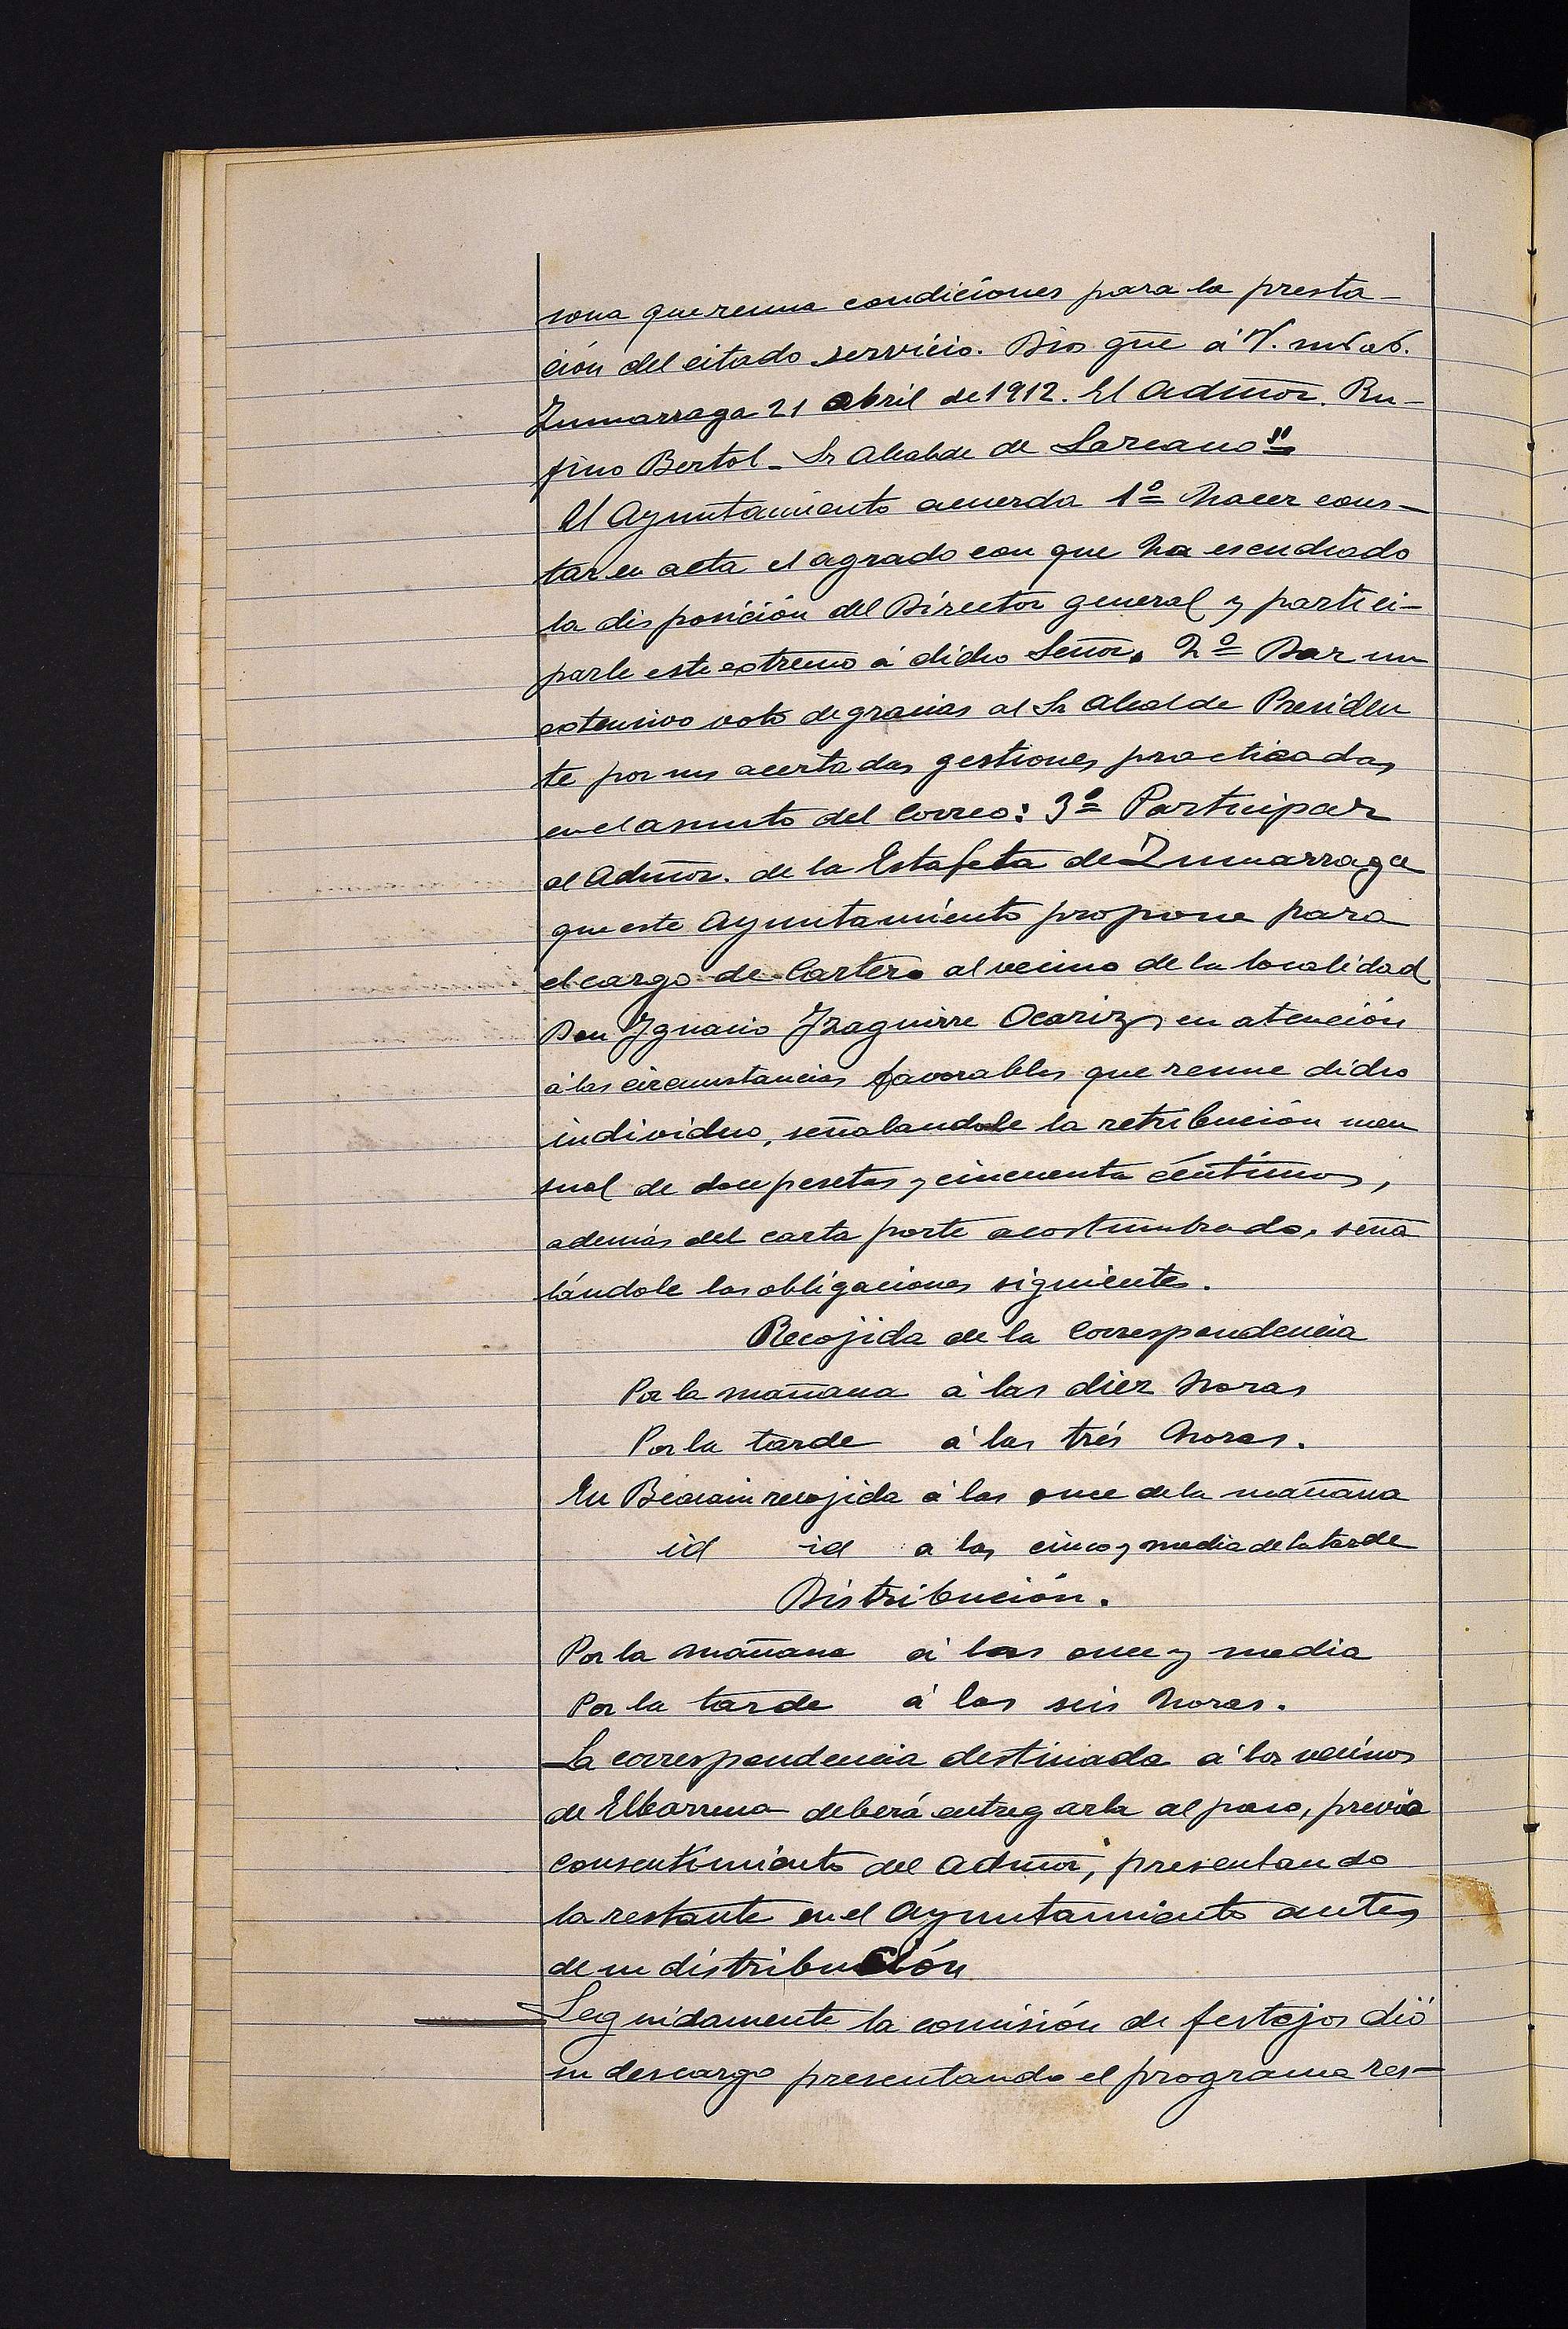 sona que reuna condiciones para la presta-
ción del citado servicio. Dios gue á V. ms as.
Zumarraga 21 abril de 1912. El Admor. Ru-
fino Bertol - Sr Alcalde de Lazcano"
El Ayuntamiento acuerda 1º hacer cons-
tar en acta el agrado con que ha escuchado
la disposición del Director general y partici-
parle este extremo á dicho Señor. 2º Dar un
extensivo voto de gracias al Sr Alcalde Presiden
te por sus acertadas gestiones practicadas
en el asunto del Correo: 3º Participar
al Admor. de la Estafeta de Zumarraga
que este Ayuntamiento propone para
el cargo de Cartero al vecino de la localidad
Don Ygnacio Yzaguirre Ocariz, en atención
á las circunstancias favorables que reune dicho
individuo, señalandole la retribución men
sual de doce pesetas y cincuenta céntimos,
además del carta porte acostumbrado, seña
lándole las obligaciones siguientes.
Recojida de la Correspondencia
Por la mañana á las diez horas
Por la tarde á las trés horas.
En Beasain recojida á las once de la mañana
id id a las cinco y media de la tarde
Distribución.
Por la mañana á las once y media
Por la tarde á las seis horas.
La correspondencia destinada á los vecinos
de Elbarrena deberá entregarla al paso, previo
consentimiento del Admor, presentando
la restante en el Ayuntamiento antes
de su distribución
Seguidamente la comisión de festejos dió
su descargo presentando el programa res-